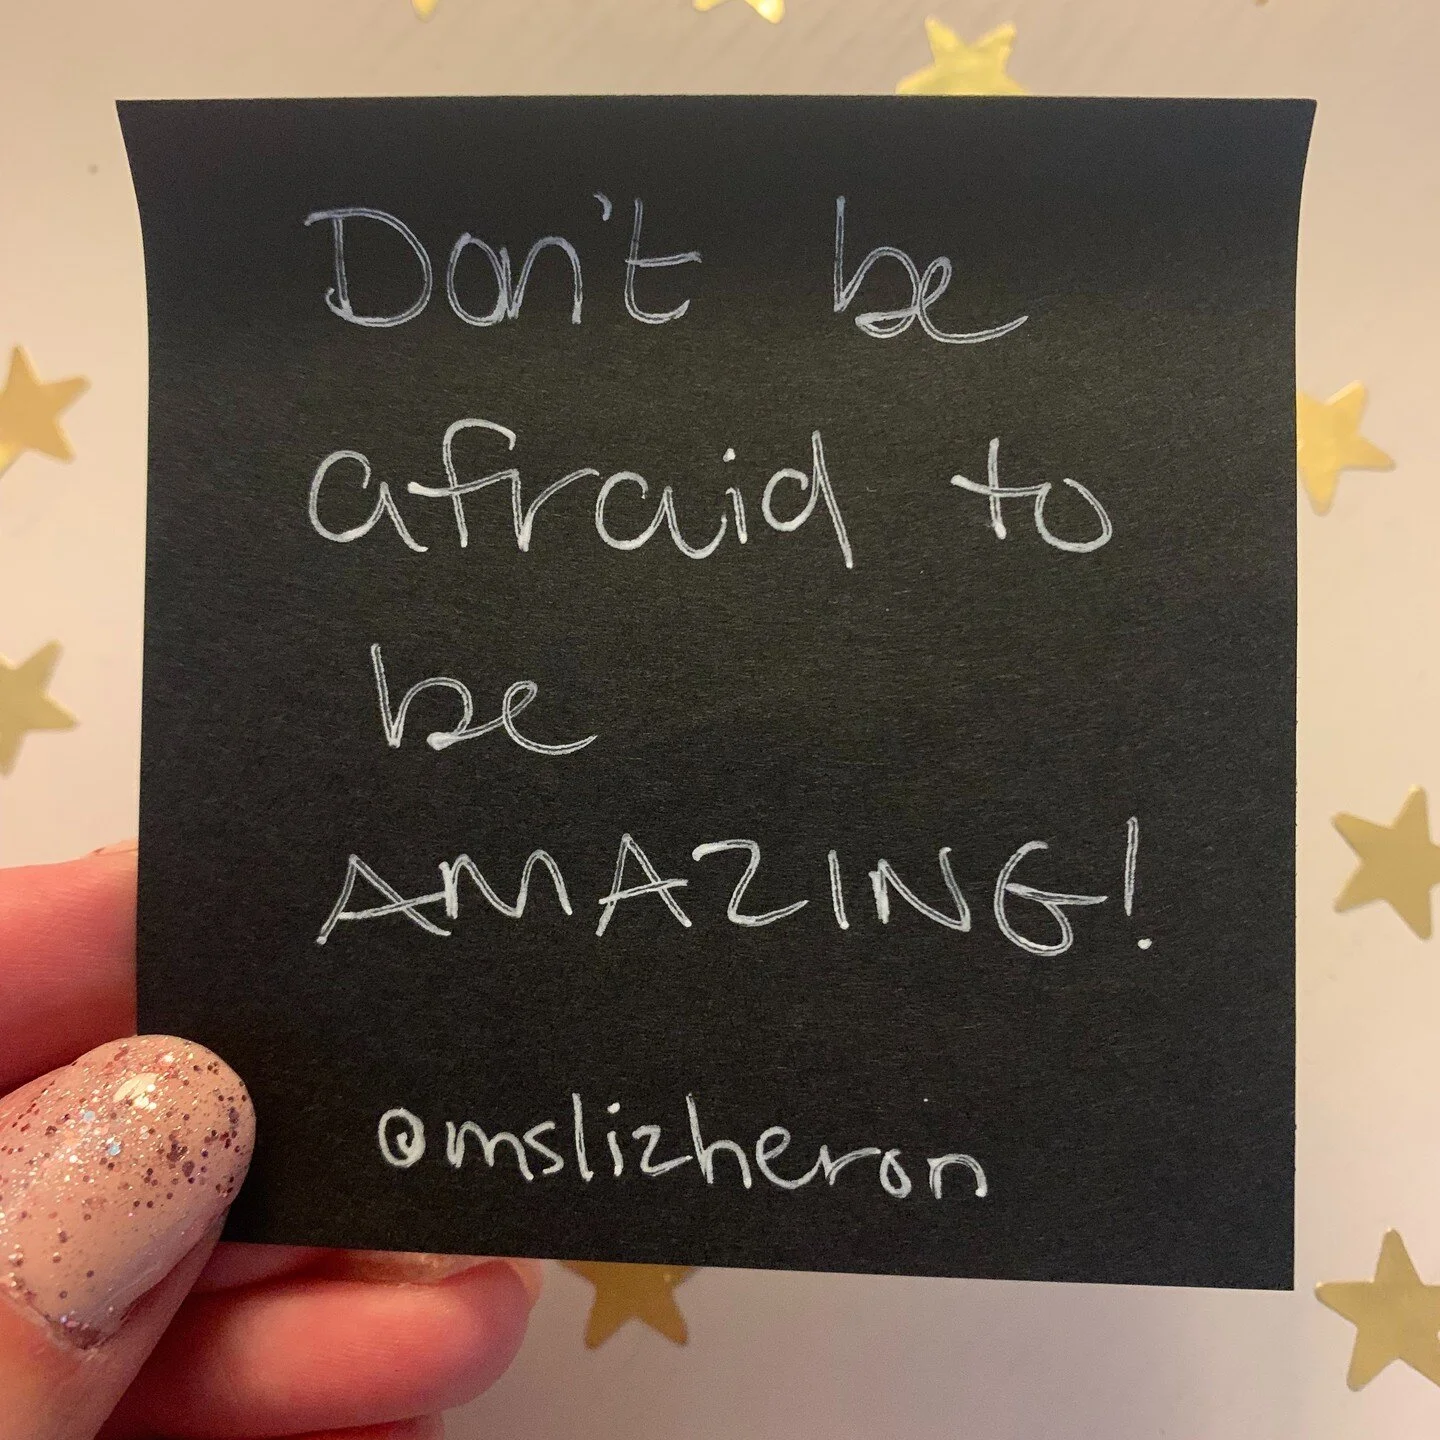 Don't be
afraid to
be
AMAZING!
@mslizheron